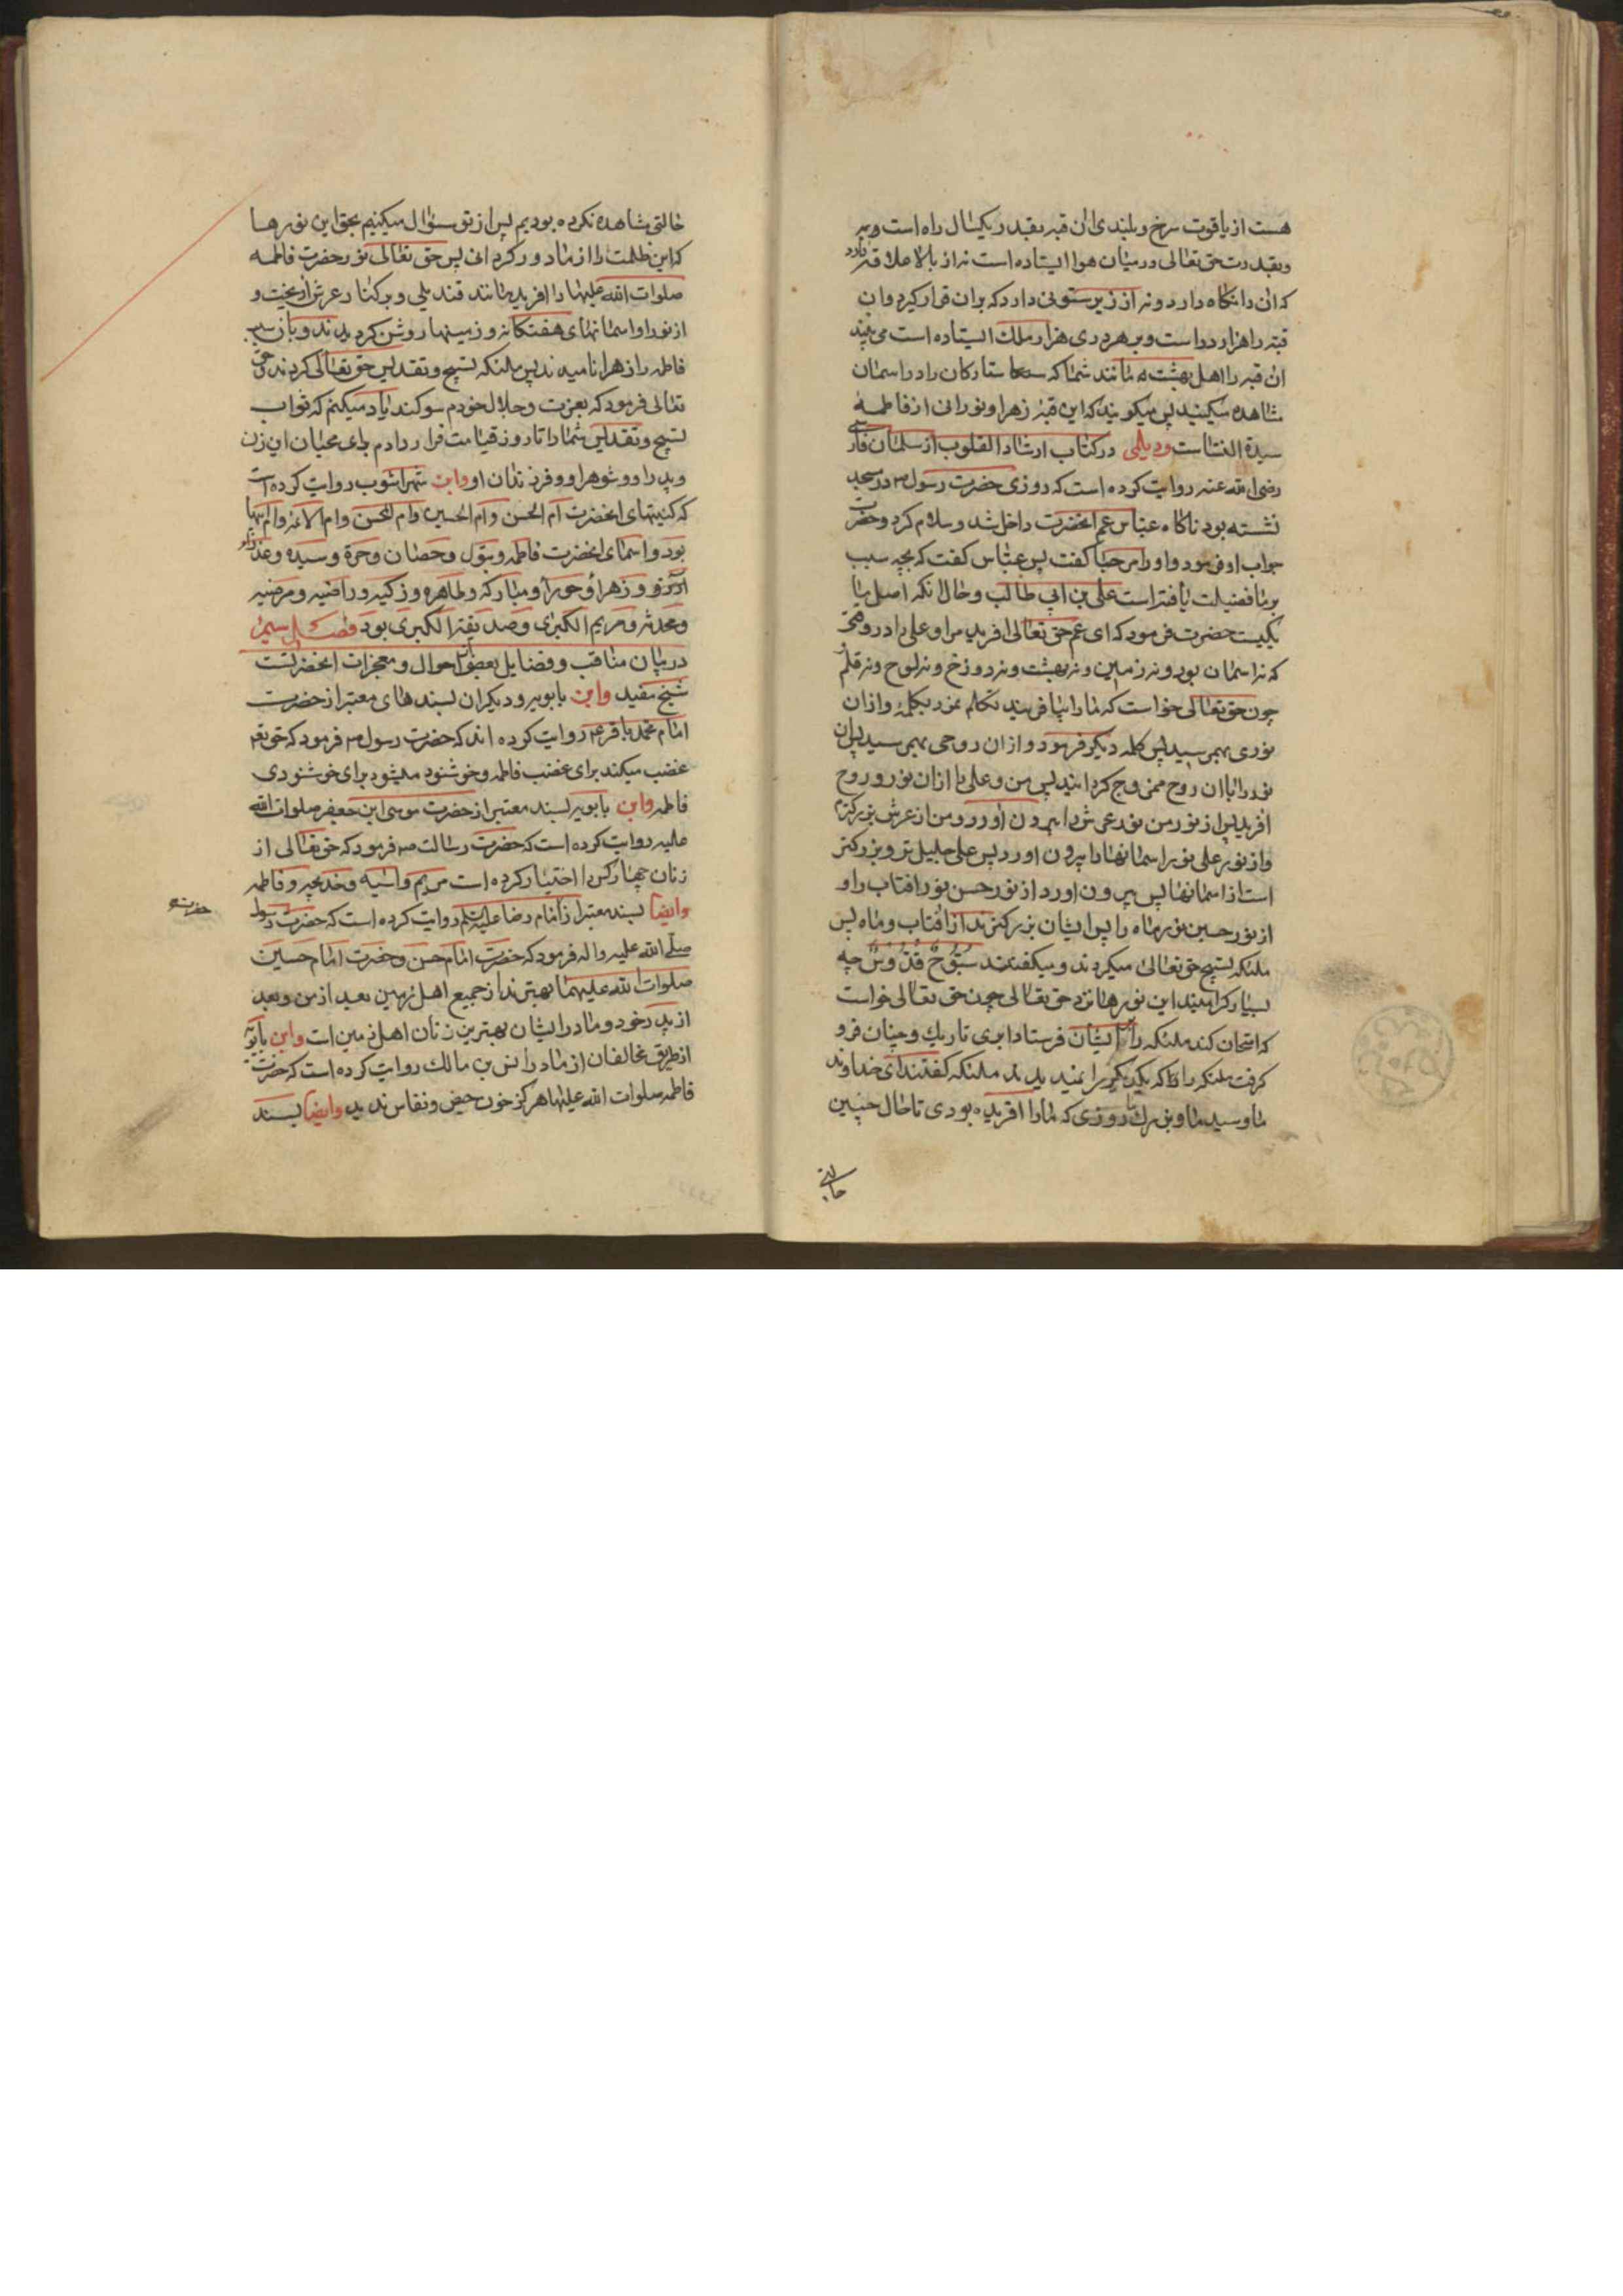 هست از یاقوت سرخ و بلندی ان قبه بقدر یکسال راه است و بر
وبقدرت حق تعالی در میان هوا ایستاده است نه از بالا علاقه دارد
که ان را نگاه دارد و نه از زیر ستونی دارد که بران قرار گیرد و ان
قبه را هزار در است و بر هر دری هزار ملک ایستاده است می بینند
ان قبه را اهل بهشت مانند شما که ستارکان را در اسمان
مشاهده میکنید پس میکویند که این قبه زهرا و نورانی از فاطمه
سیدة النساست و دیلمی در کتاب ارشاد القلوب از سلمان فارسی
رضی الله عنه روایت کرده است که روزی حضرت رسول ص در مسجد
نشسته بود ناکاه عباس عم انحضرت داخل شد و سلام کرد و حضرت
جواب او فرمود و او را مرحبا کفت پس عباس کفت که بچه سبب
بر ما فضیلت یافته است علی بن ابی طالب و حال انکه اصل ما
یکیست حضرت فرمود که ای عم حق تعالی افرید مرا و علی را در وقتی
که نه اسمان بود و نه زمین و نه بهشت و نه دوزخ و نه لوح و نه قلم
چون حق تعالی خواست که ما را بیافریند تکلم نمود بکلمه و از ان
نوری بهم رسید پس کلمه دیکر فرمود و از ان روحی بهم رسید پس ان
نور را با ان روح ممزوج کردانید پس من و علی را از ان نور و روح
افرید پس از نور من نور عرش را بیرون اورد و من از عرش بزرکترم
و از نور علی نور اسمانها را بیرون اورد پس علی جلیل تر و بزرکتر
است از اسمانها پس بیرون اورد از نور حسن نور افتاب را و
از نور حسین نور ماه را پس ایشان بزرکترند از افتاب و ماه پس
ملئکه تسبیح حق تعالی میکردند و میکفتند سُبُّوحٌ قُدُّوسٌ چه
بسیار کرامیند این نورها نزد حق تعالی چون حق تعالی خواست
که امتحان کند ملئکه را بر ایشان فرستاد ابری تاریک و چنان فرو
کرفت ملئکه را که یکدیکر را نمیدیدند ملئکه کفتند ای خداوند
ما و سید ما از روزی که ما را افریده بودی تا حال چنین
حالتی
حالتی مشاهده نکرده بودیم پس از تو سؤال میکنیم بحق این نورها
که این ظلمت را از ما دور کردانی پس حق تعالی نور حضرت فاطمه
صلوات الله علیها را افرید مانند قندیلی و بر کنار عرش اویخت و
از نور او اسمانهای هفتکانه و زمینها روشن کردیدند و باز سبب
فاطمه را زهرا نامیدند پس ملئکه تسبیح و تقدیس حق تعالی کردند و حق
تعالی فرمود که بعزت و جلال خودم سوکند یاد میکنم که ثواب
تسبیح و تقدیس شما را تا روز قیامت قرار دادم برای محبان این زن
و پدر او و شوهر او و فرزندان او و ابن شهراشوب روایت کرده است
که کنیتهای انحضرت ام الحسن و ام الحسین و ام المحسن و ام الائمه و ام ابیها
بود و اسمای انحضرت فاطمه و بتول و حصان و حرة و سیده و عذرا
و زهرا و حورا و مبارکه و طاهره و زکیه و راضیه و مرضیه
و محدثه و مریم الکبری و صدیقة الکبری بود فصل سیم
در بیان مناقب و فضایل بعضی احوال و معجزات انحضرتست
شیخ مفید و ابن بابویه و دیکران بسندهای معتبر از حضرت
امام محمد باقر ع روایت کرده اند که حضرت رسول ص فرمود که حق تعم
غضب میکند برای غضب فاطمه و خوشنود میشود برای خوشنودی
فاطمه و ابن بابویه بسند معتبر از حضرت موسی ابن جعفر صلوات الله
علیه روایت کرده است که حضرت رسالت ص فرمود که حق تعالی از
زنان چهار کس را اختیار کرده است مریم و اسیه و خدیجه و فاطمه
و ایضا بسند معتبر از امام رضا علیه السلم روایت کرده است که حضرت رسول
صلی الله علیه و اله فرمود که حضرت امام حسن و حضرت امام حسین
صلوات الله علیهما بهترند از جمیع اهل زمین بعد از من و بعد
از پدر خود و مادر ایشان بهترین زنان اهل زمین است و ابن بابویه
از طریق مخالفان از مادر انس بن مالک روایت کرده است که حضرت
فاطمه صلوات الله علیها هرکز خون حیض و نفاس ندید و ایضا بسند